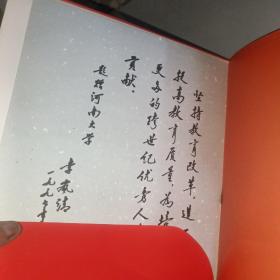 坚持教育改革，进一
提高教育质量，为培
更多的跨世纪优秀人
贡献。
题赠河南大学
李岚清
一九九七年